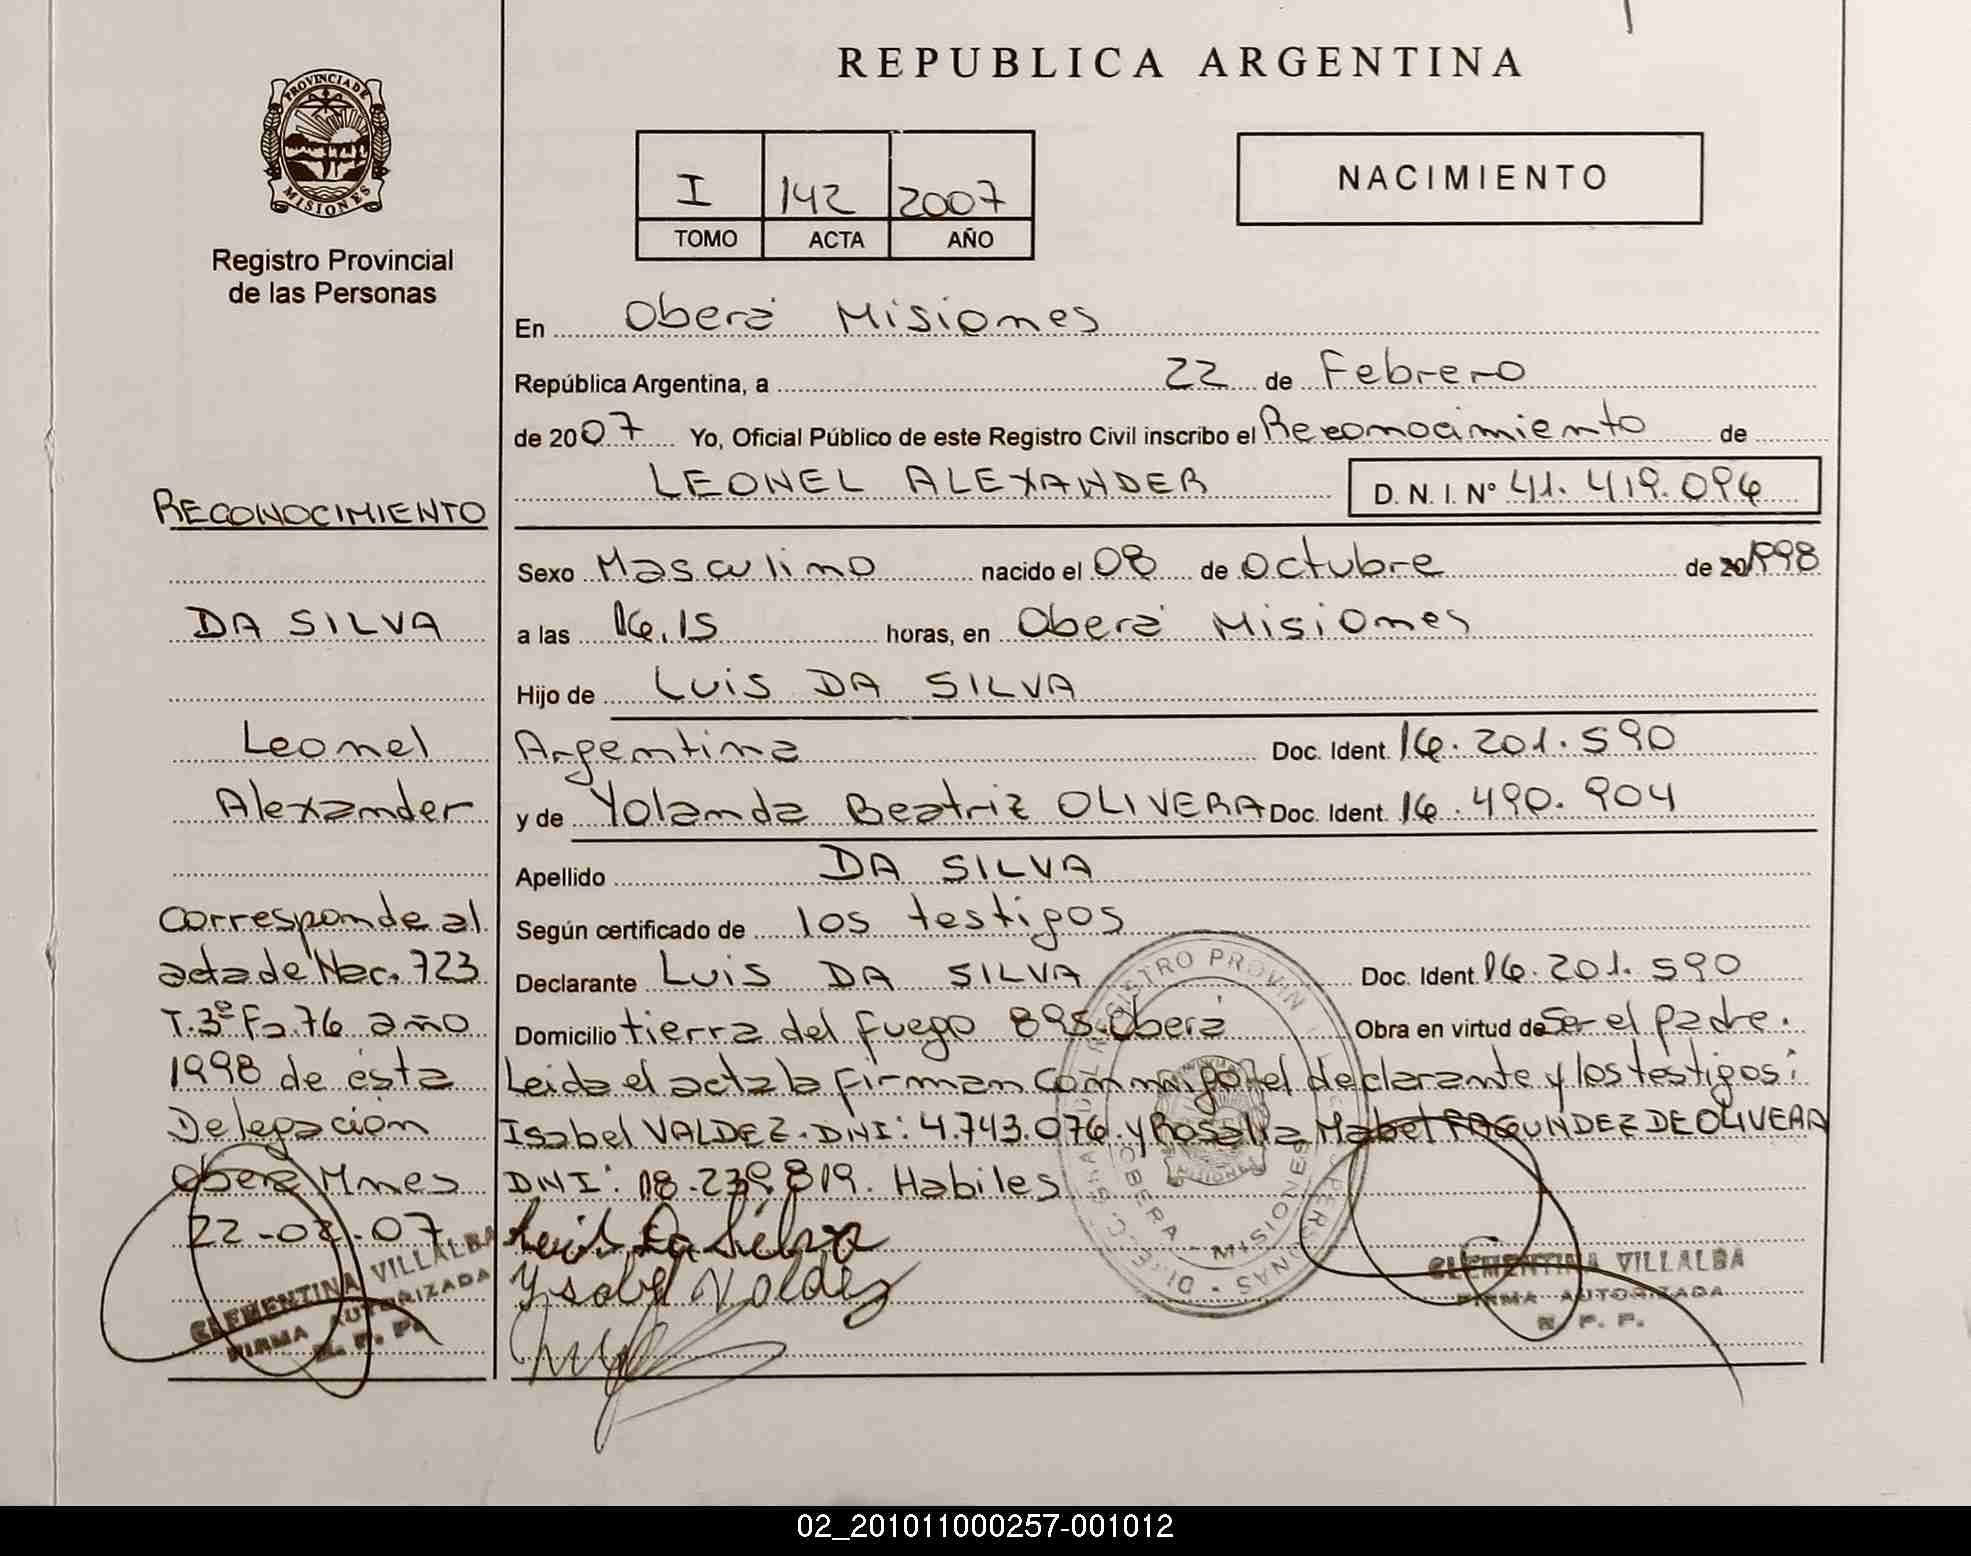 REPUBLICA ARGENTINA
PROVINCIA DE
MISIONES
Registro Provincial
de las Personas
I 142 2007
TOMO ACTA AÑO
NACIMIENTO
En Oberá Misiones
República Argentina, a 22 de Febrero
de 2007 Yo, Oficial Público de este Registro Civil inscribo el Reconocimiento de
LEONEL ALEXANDER D. N. I. Nº 41.419.096
Sexo Masculino nacido el 08 de Octubre de 20 1998
a las 16.15 horas, en Oberá Misiones
Hijo de Luis DA SILVA
Argentina Doc. Ident. 16.201.590
y de Yolanda Beatriz OLIVERA Doc. Ident. 16.490.904
Apellido DA SILVA
Según certificado de los testigos
Declarante Luis DA SILVA Doc. Ident. 16.201.590
Domicilio tierra del fuego 895-Oberá Obra en virtud de Ser el padre.
Leida el acta la firman conmigo el declarante y los testigos:
Isabel VALDEZ. DNI: 4.743.076. y Rosalia Mabel FAGUNDEZ DE OLIVERA
DNI: 18.239.819. Habiles
Luis Da Silva
Ysabel Valdez
CLEMENTINA VILLALBA
FIRMA AUTORIZADA
R. P. P.
RECONOCIMIENTO
DA SILVA
Leonel
Alexander
Corresponde al
acta de Nac. 723
T.3º Fo.76 año
1998 de ésta
Delegación
Oberá Mnes
22-02-07
CLEMENTINA VILLALBA
FIRMA AUTORIZADA
R. P. P.
02_201011000257-001012